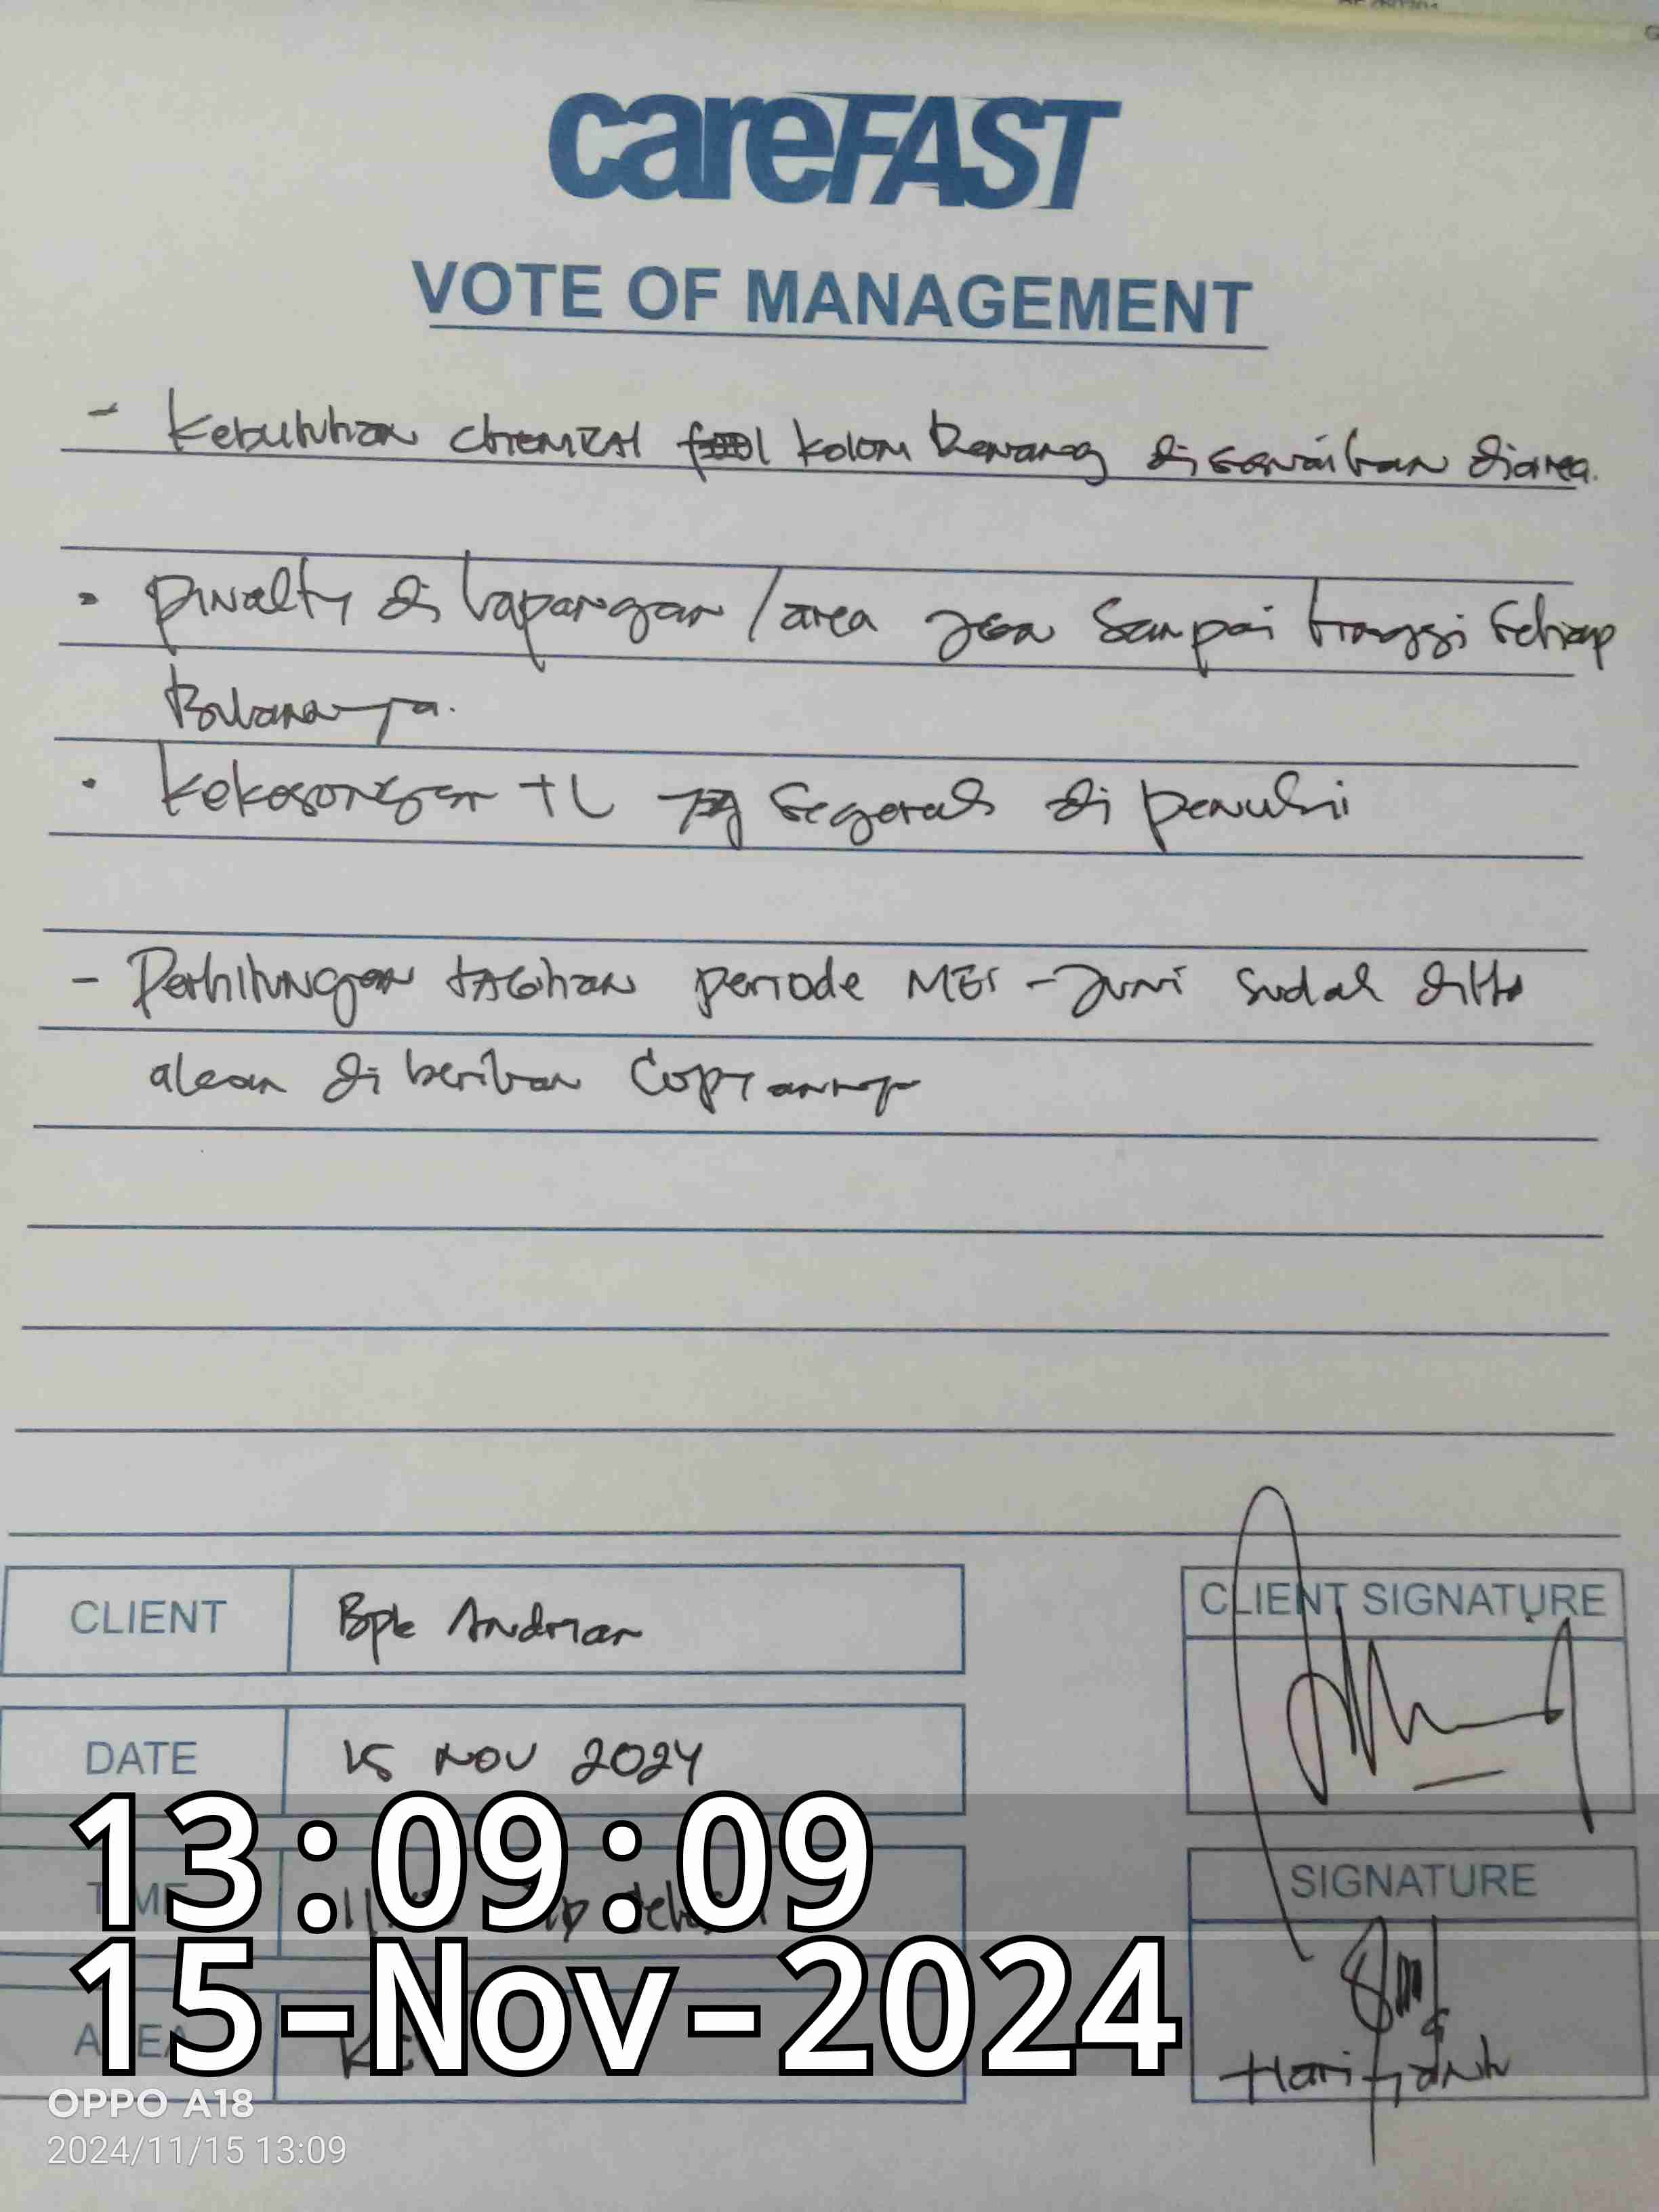 careFAST
VOTE OF MANAGEMENT
- Kebutuhan chemical kolam Renang disesuaikan diarea.
• pinalty di lapangan / area jgn sampai tinggi setiap
Bulananya.
• kekosongan TL yg segerah di penuhi
- Perhitungan tagihan periode MEI - Juni sudah ditto
akan di berikan Copyannya
CLIENT
Bpk Andrian
CLIENT SIGNATURE
DATE
15 NOV 2024
13:09:09
TIME
SIGNATURE
15-Nov-2024
AREA
Hariyanto
OPPO A18
2024/11/15 13:09